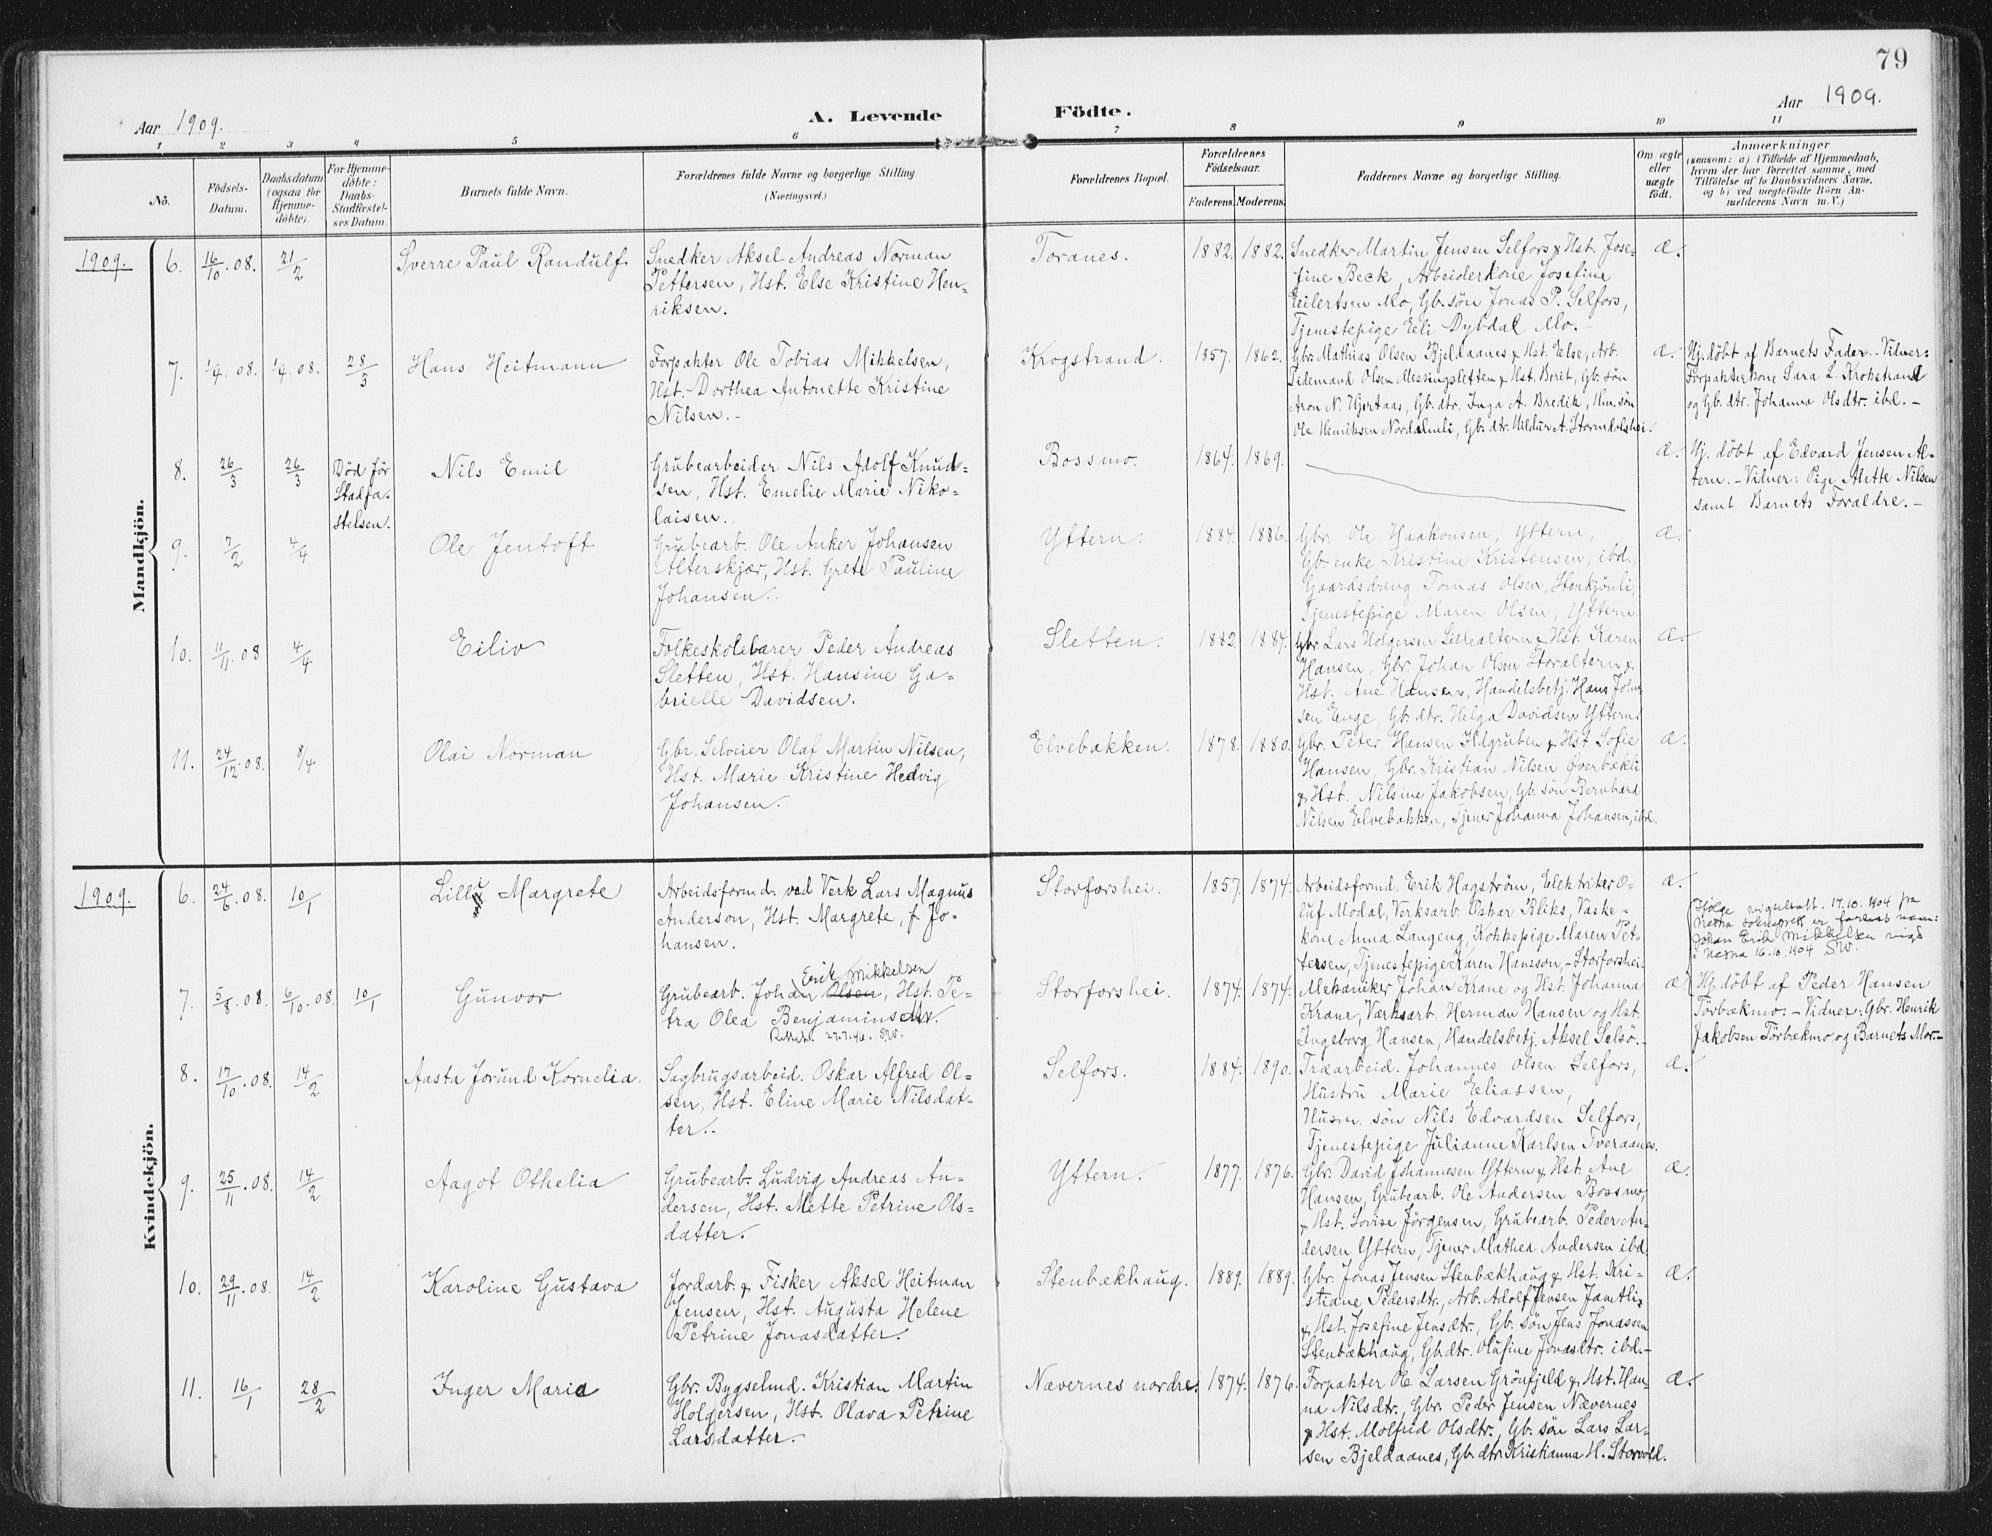 79
Aar 1909.
A. Levende
Födte.
Aar 1909.
1 2 3 4 5 6 7 8 9 10 11
No.
Födsels-
Datum.
Daabsdatum
(ogsaa for
Hjemme-
döbte).
For Hjemme-
döbte:
Daabs-
Stadfæstel-
ses Datum.
Barnets fulde Navn.
Forældrenes fulde Navne og borgerlige Stilling.
(Næringsvei.)
Forældrenes Bopæl.
Forældrenes
Födselsaar.
Faderens. Moderens.
Faddernes Navne og borgerlige Stilling.
Om ægte
eller
uægte
födt.
Anmærkninger
(saasom: a) i Tilfælde af Hjemmedaab,
hvem der har forrettet samme, med
Tilföielse af to Daabsvidners Navne,
og b) ved uægtefödte Börn An-
melderens Navn m. V.)
Mandkjön.
1909.
6. 16/10.08. 21/2
Sverre Paul Randulf
Snedker Aksel Andreas Norman
Pettersen, Hst. Else Kristine Hen-
riksen.
Toranes.
1882. 1882.
Snedker Martin Jensen Selfors & Hst. Jose-
fine Beck, Arbeiderkone Josefine
Eilertsen Mo, Gb. søn Jonas P. Selfors,
Tjenestepige Eli Dybdal Mo.-
æ.
7. 1/4.08. 1/4.08. 28/3
Hans Heitmann
Forpakter Ole Tobias Mikkelsen,
Hst. Dorthea Antonette Kristine
Nilsen.-
Krogstrand.
1857. 1862.
Gbr. Mathias Olsen Bjeldaanes & Hst. Else, Arb.
Tidemand Olsen Messingsletten & Hst. Berit, Gb. søn
Aron N. Hjertaas, Gb. dtr. Inga A. Bredik, Hm. søn
Ole Henriksen Nordalmli, Gb. dtr. Hildur A. Stormdalshei.
æ.
Hj. døbt af Barnets Fader.- Vidner:
Forpakterkone Sara L. Krokstrand
og Gb. dtr. Johanna Olsdtr. ibd.-
8. 26/3 26/3
Død før
Stadfæ-
stelsen.
Nils Emil
Grubearbeider Nils Adolf Knud-
sen, Hst. Emelie Marie Niko-
laisen.
Bossmo.
1864. 1869.
æ.
Hj. døbt af Edvard Jensen Al-
tern.- Vidner: Pige Alette Nilsen
samt Barnets Forældre.-
9. 7/2 4/4
Ole Jentoft
Grubearb. Ole Anker Johansen
Alterskjær, Hst. Grete Pauline
Johansen.
Yttern.
1884. 1886.
Gbr. Ole Haakonsen, Yttern,
Gb. enke Kristine Kristensen, ibd.,
Gaardsdreng Tomas Olsen, Stenkjønli,
Tjenestepige Maren Olsen, Yttern.
æ.
10. 11/11.08 4/4
Eiliv
Folkeskolelærer Peder Andreas
Sletten, Hst. Hansine Ga-
brielle Davidsen.
Sletten.
1882. 1884.
Gbr. Lars Holgersen Lillealtern & Hst. Karen
Hansen, Gbr. Johan Olsen Storaltern &
Hst. Ane Hansen, Handelsbetj. Hans Johan-
sen Enge, Gb. dtr. Helga Davidsen Yttern.
æ.
11. 24/12.08. 8/4
Olai Norman
Gbr. Selveier Olaf Martin Nilsen,
Hst. Marie Kristine Hedvig
Johansen.
Elvebakken.
1878. 1880.
Gbr. Peter Hansen Ildgruben & Hst. Sofie
Hansen, Gbr. Kristian Nilsen Øverbækli
& Hst. Nilsine Jakobsen, Gb. søn Bernhard
Nilsen Elvebakken, Tjener Johanna Johansen, ibd.
æ.
Kvindekjön.
1909.
6. 24/6.08. 10/1
Lilli Margrete
Arbeidsformd. ved Verk Lars Magnus
Anderson, Hst. Margrete, f. Jo-
hansen.
Storforshei.
1857. 1874.
Arbeidsformd. Erik Hagstrøm, Elektriker O-
luf Modal, Verksarb. Oskar Kliks, Vaske-
kone Anna Langeng, Kokkepige Maren Pet-
tersen, Tjenestepige Karen Hansson,- Storforshei.
æ.
Ifølge vigselsatt. 17.10.1904 fra
Nesna sokneprest er farens navn:
Johan Erik Mikkelsen vigd
i Nesna 16.10.1904 SW.
7. 5/8.08. 6/10.08. 10/1
Gunvor
Erik Mikkelsen
Grubearb. Johan Olsen, Hst. Pe-
tra Olea Benjaminsen.
Rettet. 27.7.46. SW.
Storforshei.
1874. 1874.
Mekaniker Johan Krane og Hst. Johanna
Krane, Værksarb. Herman Hansen og Hst.
Ingeborg Hansen, Handelsbetj. Aksel Selsø.-
æ
Hj. døbt af Peder Hansen
Tørbækmo.- Vidner: Gbr. Henrik
Jakobsen Tørbækmo og Barnets Mor.-
8. 17/10.08. 14/2
Aasta Jorund Kornelia.
Sagbrugsarbeid. Oskar Alfred Ol-
sen, Hst. Eline Marie Nilsdat-
ter.
Selfors.
1884. 1890.
Træarbeid. Johannes Olsen Selfors,
Hustru Marie Eliassen,
Husm. søn Nils Edvardsen Selfors,
Tjenestepige Julianne Karlsen Tveraanes.
æ.
9. 25/11.08. 14/2
Aagot Othelia
Grubearb. Ludvig Andreas An-
dersen, Hst. Mette Petrine Ols-
datter.
Yttern.
1877. 1876.
Gbr. David Johannesen Yttern & Hst. Ane
Hansen, Grubearb. Ole Andersen Bossmo,
& Hst. Lovise Jørgensen, Grubearb. Peder An-
dersen Yttern, Tjener Mathea Andersen ibd.
æ.
10. 29/11.08. 14/2
Karoline Gustava
Jordarb. & Fisker Aksel Heitman
Jensen, Hst. Augusta Helene
Petrine Jonasdatter.
Stenbækhaug.
1889. 1889.
Gbr. Jonas Jensen Stenbækhaug & Hst. Kri-
stiane Pedersdtr., Arb. Adolf Jensen Jamtli,
& Hst. Josefine Jensdtr., Gb. søn Jens Jonassen
Stenbækhaug, Gb. dtr. Olufine Jonasdtr. ibd.-
æ.
11. 16/1 28/2
Inger Marie
Gbr. Bygselmd. Kristian Martin
Holgersen, Hst. Olava Petrine
Larsdatter.
Nævernes nordre.
1874. 1876.
Forpakter Ole Larsen Grønfjeld & Hst. Han-
na Nilsdtr., Gbr. Peder Jensen Nævernes
& Hst. Molfrid Olsdtr., Gb. søn Lars Lar-
sen Bjeldaanes, Gb. dtr. Kristianna H. Storvold.
æ.